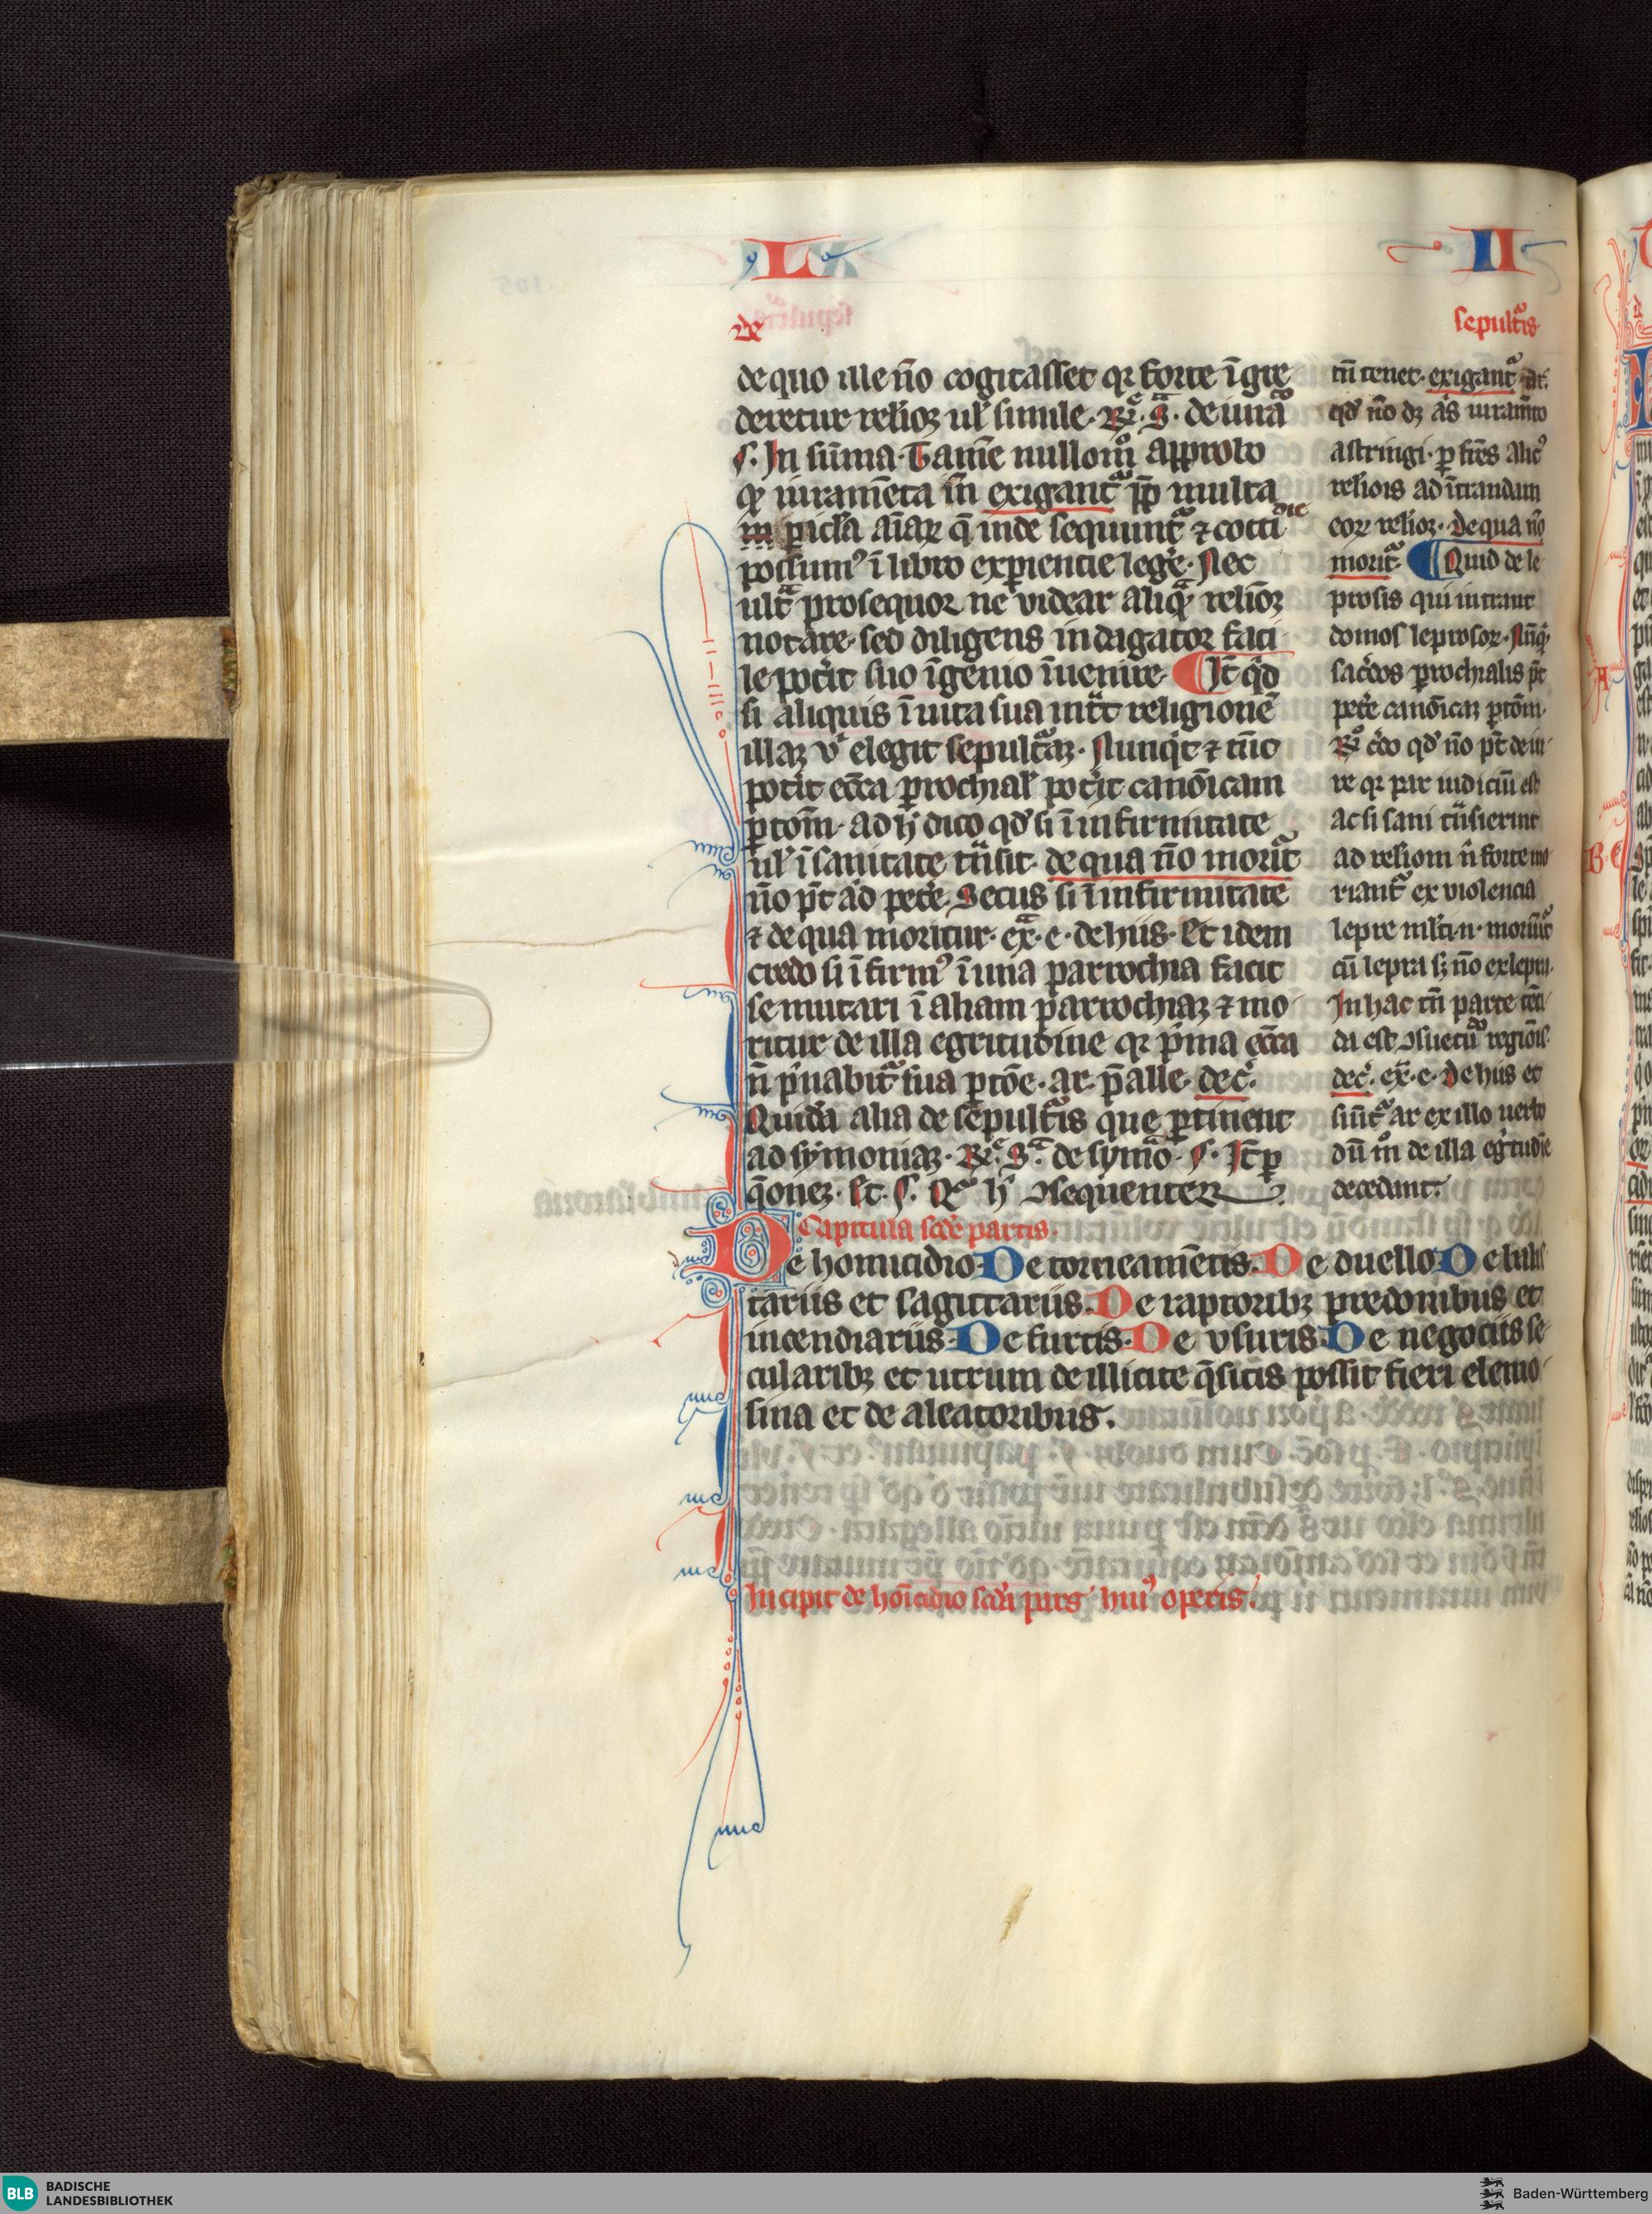 L II
de sepult᷑is
de quo ille nō cogitasset qr forte īgre
deretur relioꝫ ul' simile. R͛. s͛. de iura͛
s. In sūma. Tamē nullom̊ approbo
qꝫ iuramēta in exigant᷑ ꝓp multa
pic̄la aīaꝝ q̄ inde sequunt᷑ ⁊ cotti die
possum⁹ ī libro exꝑiencie lege͛. Nec
ult͛ prosequor ne videar aliqͣꝫ relioꝫ
notare. sed diligens indagator faci
le pot͛it suo īgenio īuenire. ¶ It̄ qd̄
si aliquis ī uita sua int͛t religionē
illaꝫ v' elegit sepult᷑aꝫ. Nunqͥt ⁊ tūc
pot͛it ecc̄a ꝑrochial' pot͛it canōicam
ꝑtōm. ad h̄ dico qd̄ si ī infirmitate
ul' ī sanitate t͛nsit. de qua nō morit᷑
nō pt̄ ad pete͛. Secus si ī infirmitate
⁊ de qua moritur. ex͛. e. de hiis. Et idem
credo si īfirm⁹ ī una parrochia facit
se mutari ī aliam parrochiaꝫ ⁊ mo
ritur de illa egritudine qr p͛ma ecc̄a
n̄ p͛uabit᷑ sua ꝑtōe. ar. p̄alle. dec̄.
Quidā alia de sepult᷑is que ꝑtinent
ad symoniaꝫ. R͛. s͛. de symō. s. It̄ ꝑ
q̄oneꝫ. Et. s. Qͦ h̄ ꝯsequenter
tn̄ tenet. exigant᷑ ar.
qd̄ nō dꝫ as iuramto
astringi. ꝑ frēs alic⁹
reliois ad ītrandum
eoꝝ relioꝫ. De qua nō
morit᷑. ¶ Quid de le
prosis qui intrant
domos leprosoꝝ. Nūqͥ
sac͛dos ꝑrochialis pt̄
pete͛ canōicaꝫ ꝑtōm.
R͛ c͛do qd̄ nō pt̄ de iu
re qr par iudiciū est
ac si sani t͛nsierint
ad reliom n̄ forte mo
riant᷑ ex violencia
lepre ml̄ti.n. moriūt᷑
cū lepra sꝫ nō ex lepra.
In hac tn̄ parte tēn
da est ꝯsuetū regiōis.
dec̄. ex͛. e. De hiis et
sūt᷑ ar ex illo uerbo
dū m̊ de illa eg͛tudīe
decedunt.
Capitula scd̄e partis.
De homicidio. De torneamētis. De duello. De balis
tariis et sagittariis. De raptoribꝫ predonibus et
incendiariis. De furtis. De vsuris. De negociis se
cularibꝫ et utrum de illicite q̄sitis possit fieri elemo
sina et de aleatoribus.
Incipit de hoīcidio scd̄i ꝑars hui⁹ operis.
BLB BADISCHE
LANDESBIBLIOTHEK
Baden-Württemberg